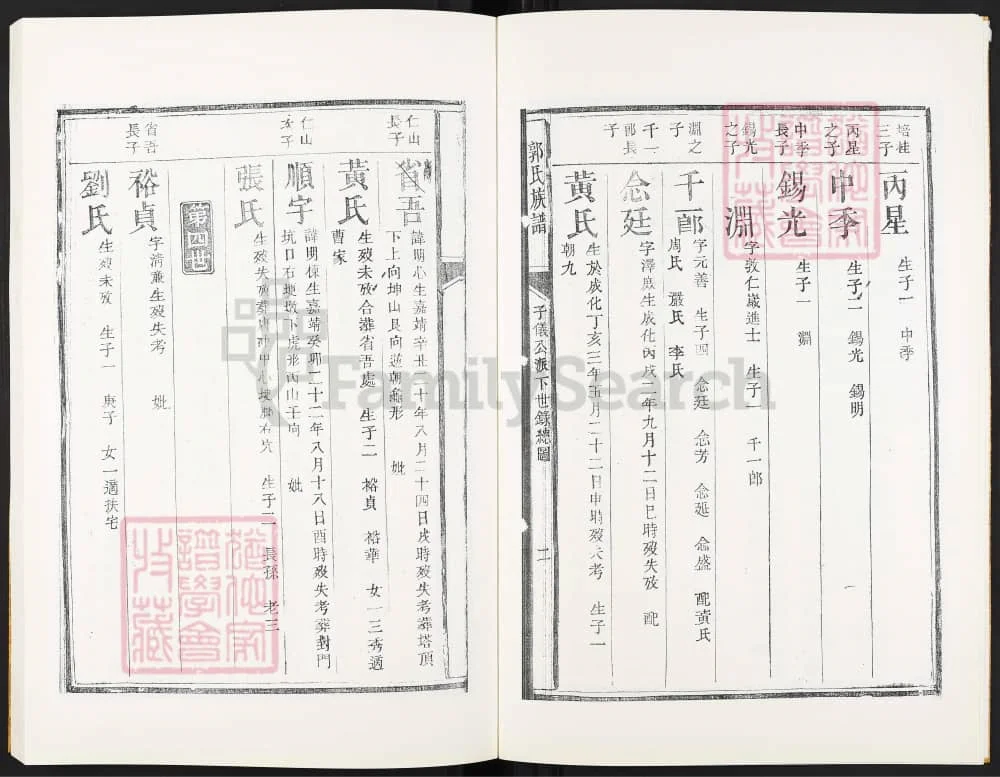 培桂三子
丙星 生子一 中季
丙星之子
中季 生子二 錫光 錫明
中季長子
錫光 生子一 淵
錫光之子
淵 字敦仁 進士 生子一 千一郎
淵之子
千一郎 字元善 生子四 念廷 念芳 念延 念盛 配黃氏
周氏 嚴氏 李氏
千一郎長子
念廷 字澤 生成化丙戌二年九月十二日巳時歿失攷 配
黃氏 生於成化丁亥三年五月二十二日申時歿失考 生子一
朝九
郭氏族譜
子儀公派下世錄總圖
二
仁山長子
省吾 諱明心生嘉靖辛丑二十年八月二十四日戌時歿失考葬塔頂
下上向坤山艮向 朝 形 妣
黃氏 生歿未攷合葬省吾處 生子二 裕貞 裕華 女一三秀適
曹家
仁山次子
順宇 諱明棟生嘉靖癸卯二十二年八月十八日酉時歿失考葬對門
坑口石 墩下虎形丙山壬向 妣
張氏 生歿失攷葬 生子二 長孫 老三
第四世
省吾長子
裕貞 字清 生歿失考 妣
劉氏 生歿未攷 生子一 庚子 女一適扶宅
FamilySearch